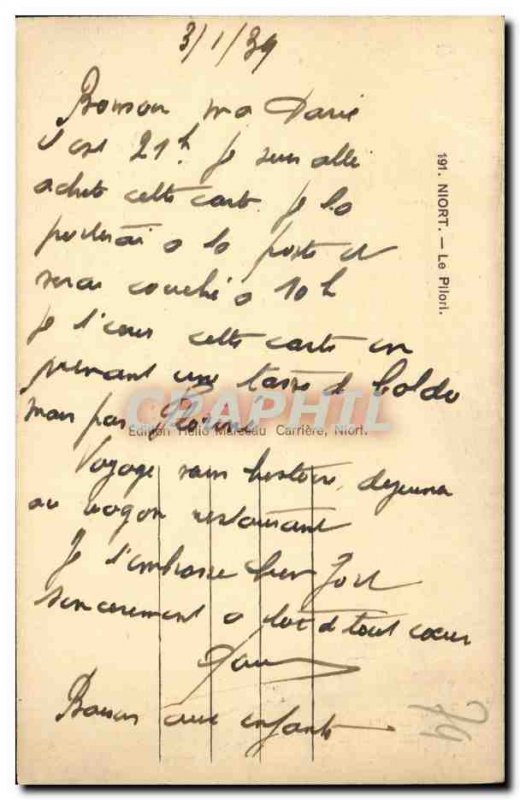 3/1/39
ma
il est 21h. Je suis allé
acheté cette carte. Je la
porterai a la poste et
serai couché a 10h
Je t'écris cette carte en
prenant une tasse de boldo
mais pas
Voyage sans histoire, dejeuner
au wagon restaurant
Je t'embrasse bien fort
sincerement a toi d tout coeur
Baisers aux enfants
191. NIORT. — Le Pilori.
Edition Hélio Marceau Carrière, Niort.
CRAPHIL
79